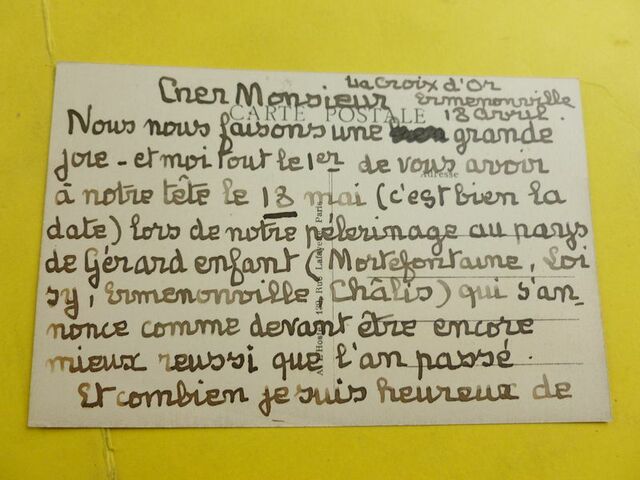 La Croix d'Or
Cher Monsieur Ermenonville
CARTE POSTALE 18 avril.
Nous nous faisons une grande
joie - et moi tout le 1er de vous avoir
Adresse
à notre tête le 18 mai (c'est bien la
date) lors de notre pélerinage au pays
de Gérard enfant (Mortefontaine, Loi
sy, Ermenonville Châlis) qui s'an-
nonce comme devant être encore
mieux reussi que l'an passé.
Et combien je suis heureux de
Rue Lafayette, Paris